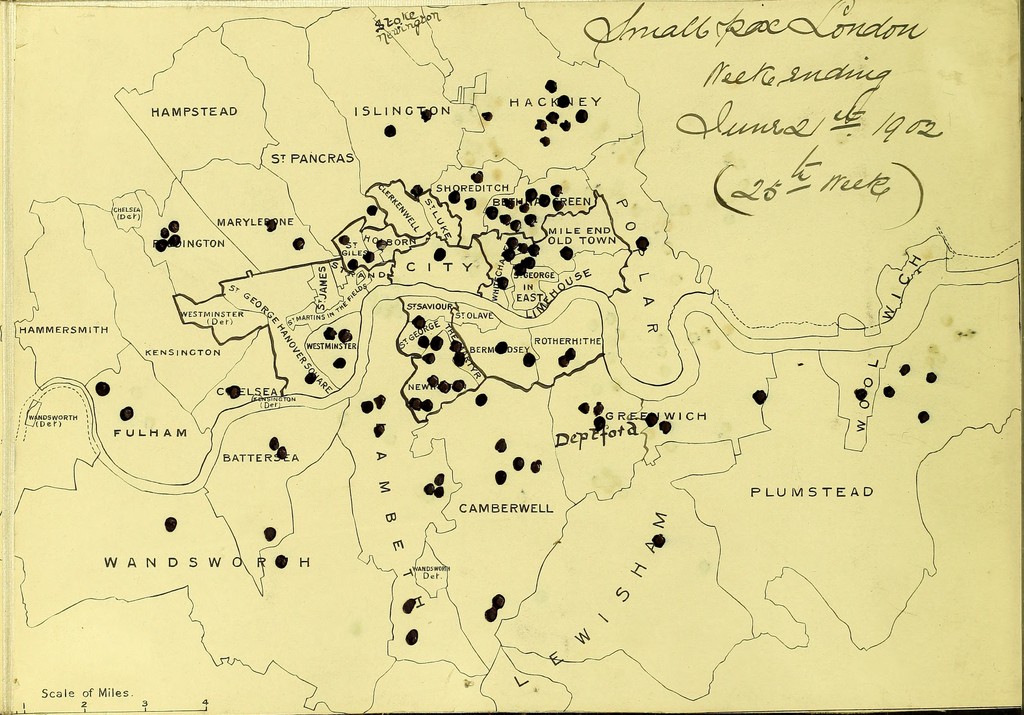 Stoke
Newington
Small-pox London
Week ending
June 21st 1902
(25th Week)
HAMPSTEAD
ISLINGTON
HACKNEY
ST PANCRAS
SHOREDITCH
CLERKENWELL
ST LUKE
BETHNAL GREEN
CHELSEA
(Det)
MARYLEBONE
PADDINGTON
HOLBORN
ST
GILES
STRAND
CITY
WHITECHAPEL
MILE END
OLD TOWN
POPLAR
ST GEORGE
IN
EAST
LIMEHOUSE
ST JAMES
ST MARTINS IN THE FIELDS
ST GEORGE HANOVER SQUARE
WESTMINSTER
(Det)
WESTMINSTER
ST SAVIOUR
ST OLAVE
ST GEORGE THE MARTYR
BERMONDSEY
ROTHERHITHE
NEWINGTON
HAMMERSMITH
KENSINGTON
CHELSEA
KENSINGTON
(Det)
WANDSWORTH
(Det)
FULHAM
BATTERSEA
GREENWICH
Deptford
WOOLWICH
LAMBETH
CAMBERWELL
PLUMSTEAD
WANDSWORTH
WANDSWORTH
Det.
LEWISHAM
Scale of Miles.
1 2 3 4